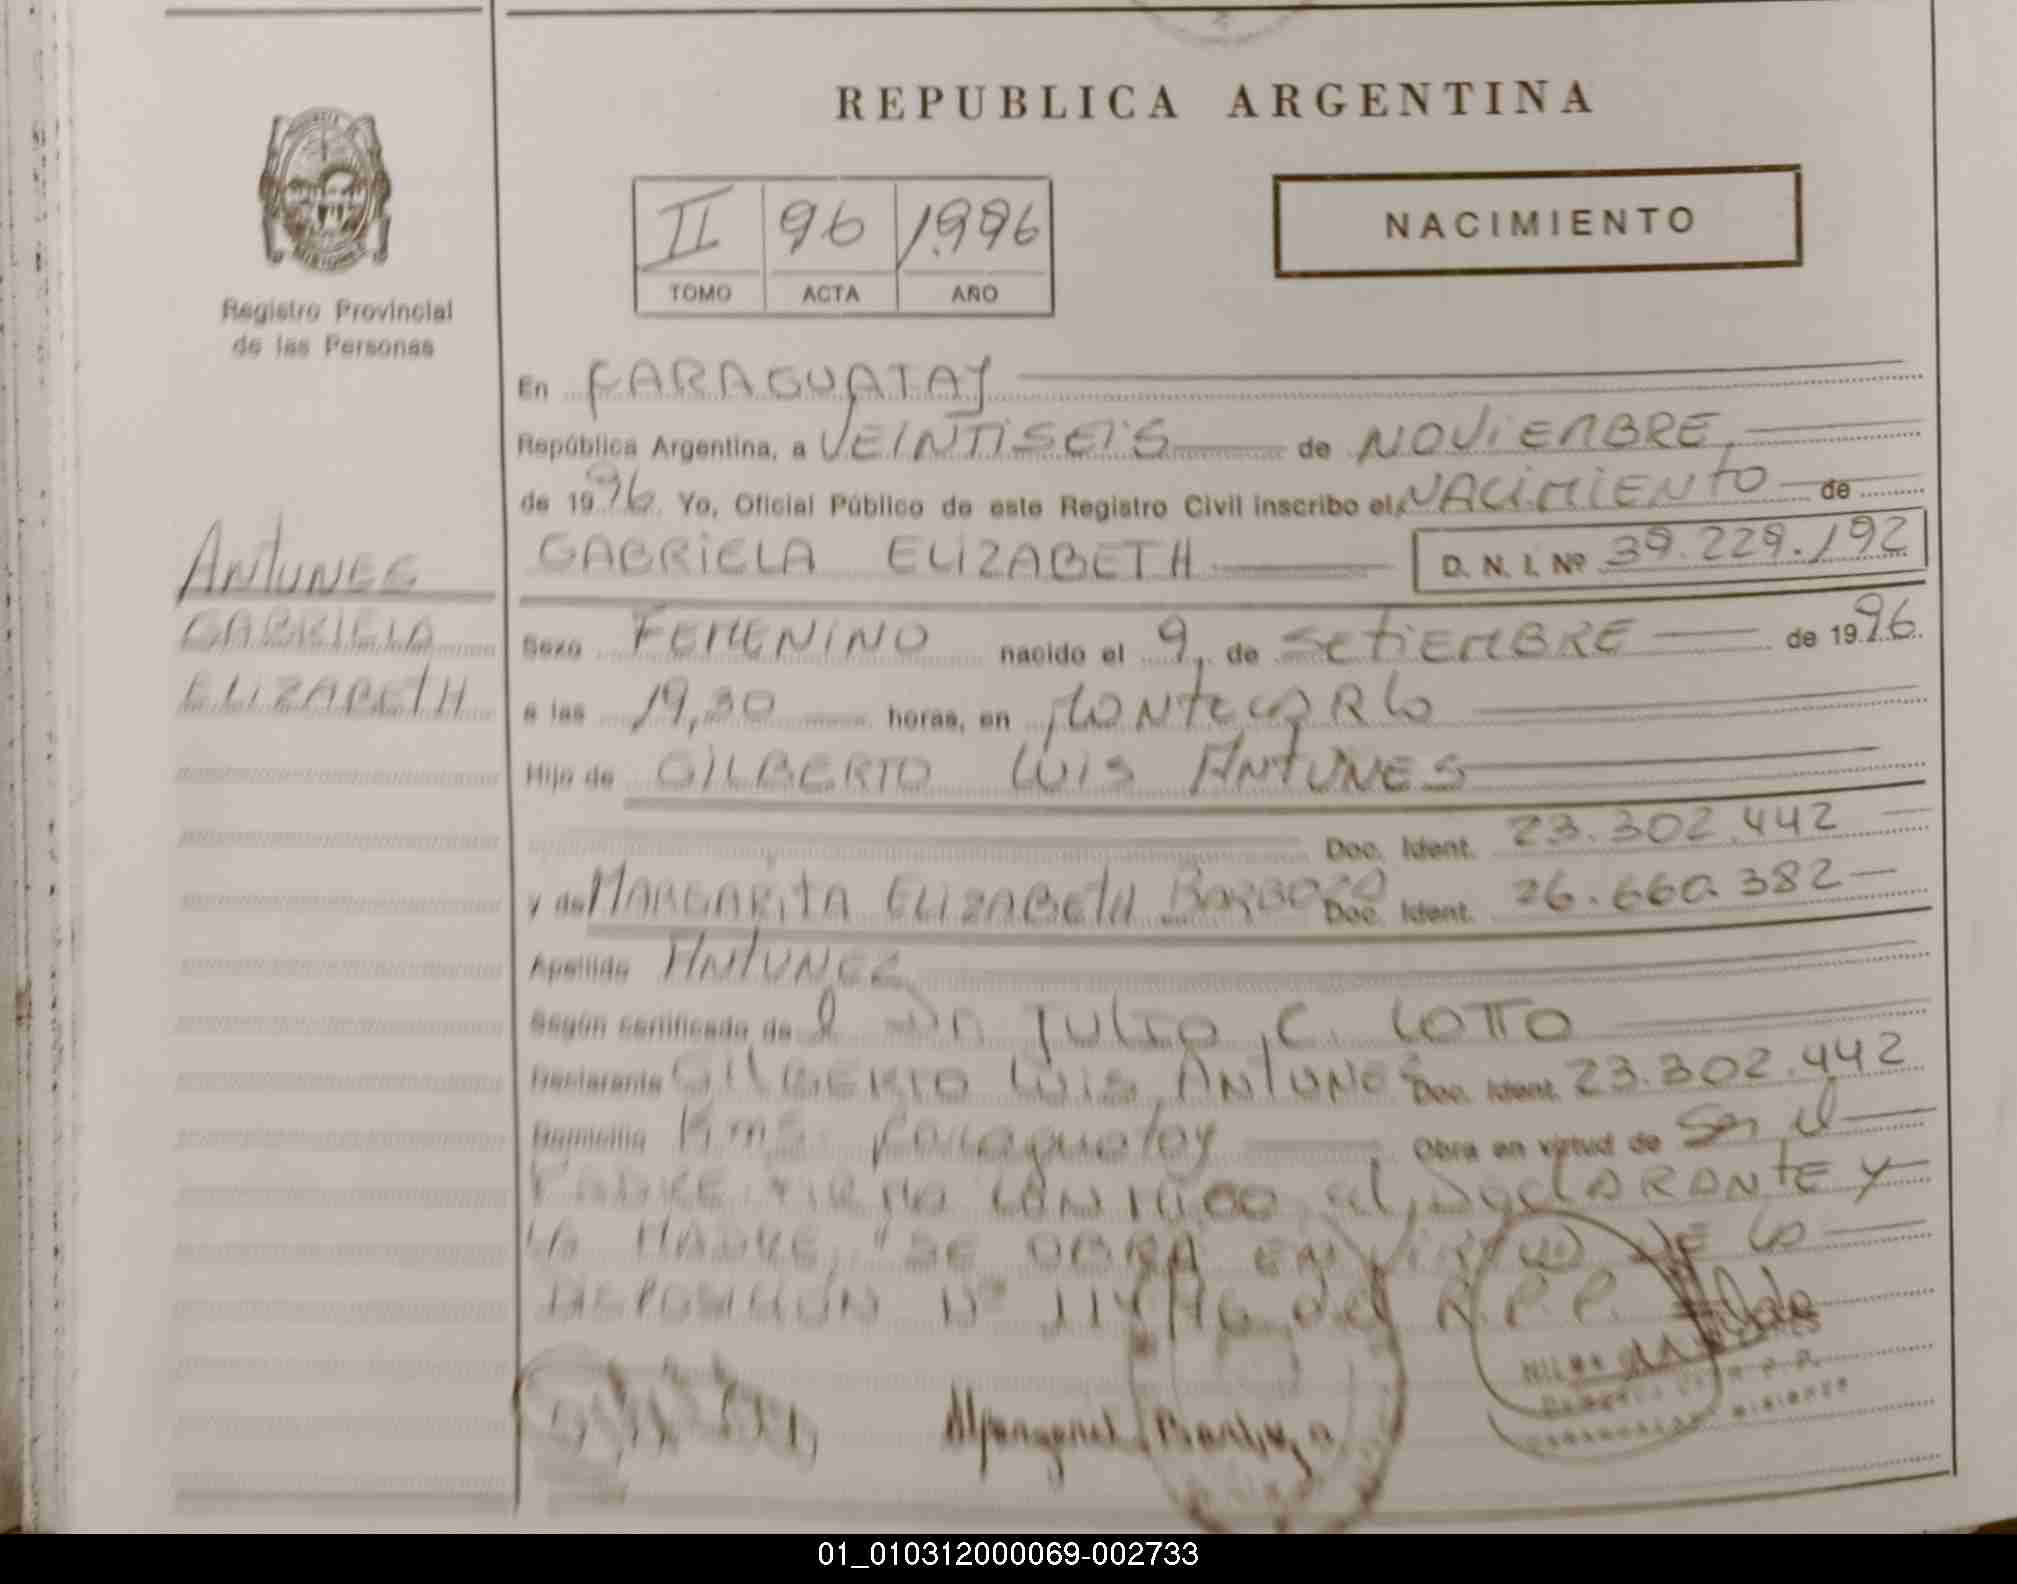 REPUBLICA ARGENTINA
II 96 1.996
TOMO ACTA AÑO
NACIMIENTO
Registro Provincial
de las Personas
En CARAGUATAY
República Argentina, a VEINTISEIS de NOVIEMBRE,
de 1996. Yo, Oficial Público de este Registro Civil inscribo el NACIMIENTO de
GABRIELA ELIZABETH D. N. I. Nº 39.229.192
ANTUNES
GABRIELA
ELIZABETH
Sexo FEMENINO nacido el 9, de SETIEMBRE de 1996.
a las 19,30 horas, en MONTECARLO
Hijo de GILBERTO LUIS ANTUNES
Doc. Ident. 23.302.442
y de MARGARITA ELIZABETH BARBOZA Doc. Ident. 26.660.382
Apellido ANTUNES
Según certificado de l DR JULIO C. LOTTO
Declarante GILBERTO LUIS ANTUNES Doc. Ident. 23.302.442
Domicilio Km5 Caraguatay Obra en virtud de Ser el
PADRE FIRMA CONMIGO el DECLARANTE Y
LA MADRE, "SE OBRA EN VIRTUD DE LA
DISPOSICIÓN Nº del R.P.P.
01_010312000069-002733